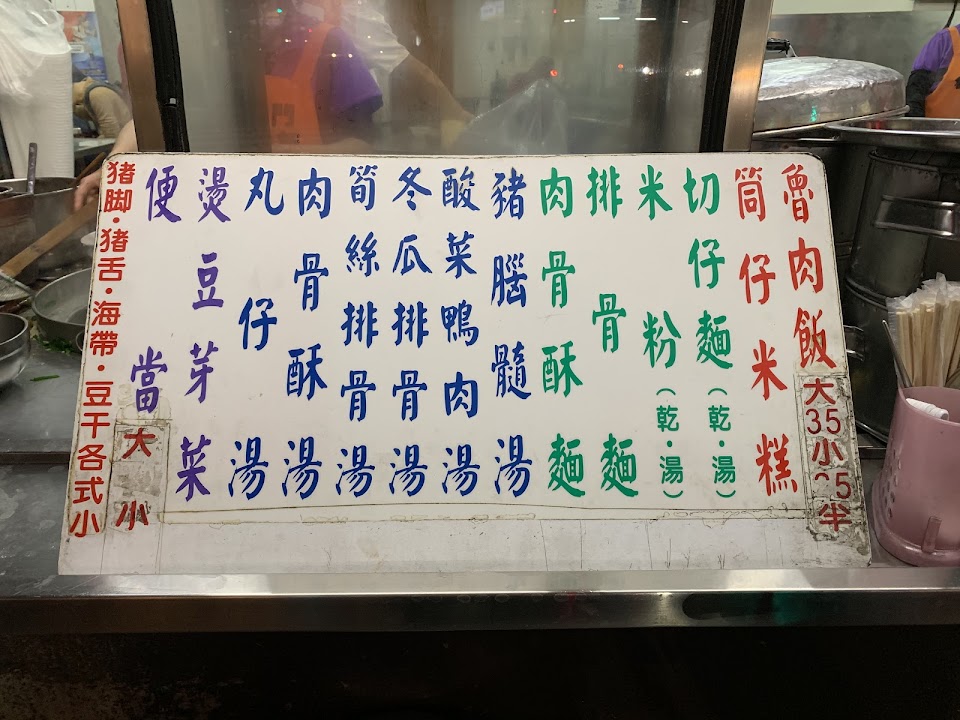 魯肉飯 大35小25半
筒仔米糕
切仔麵(乾·湯)
米粉(乾·湯)
排骨麵
肉骨酥麵
豬腦髓湯
酸菜鴨肉湯
冬瓜排骨湯
筍絲排骨湯
肉骨酥湯
丸仔湯
燙豆芽菜
便當 大 小
猪脚·猪舌·海帶·豆干各式小